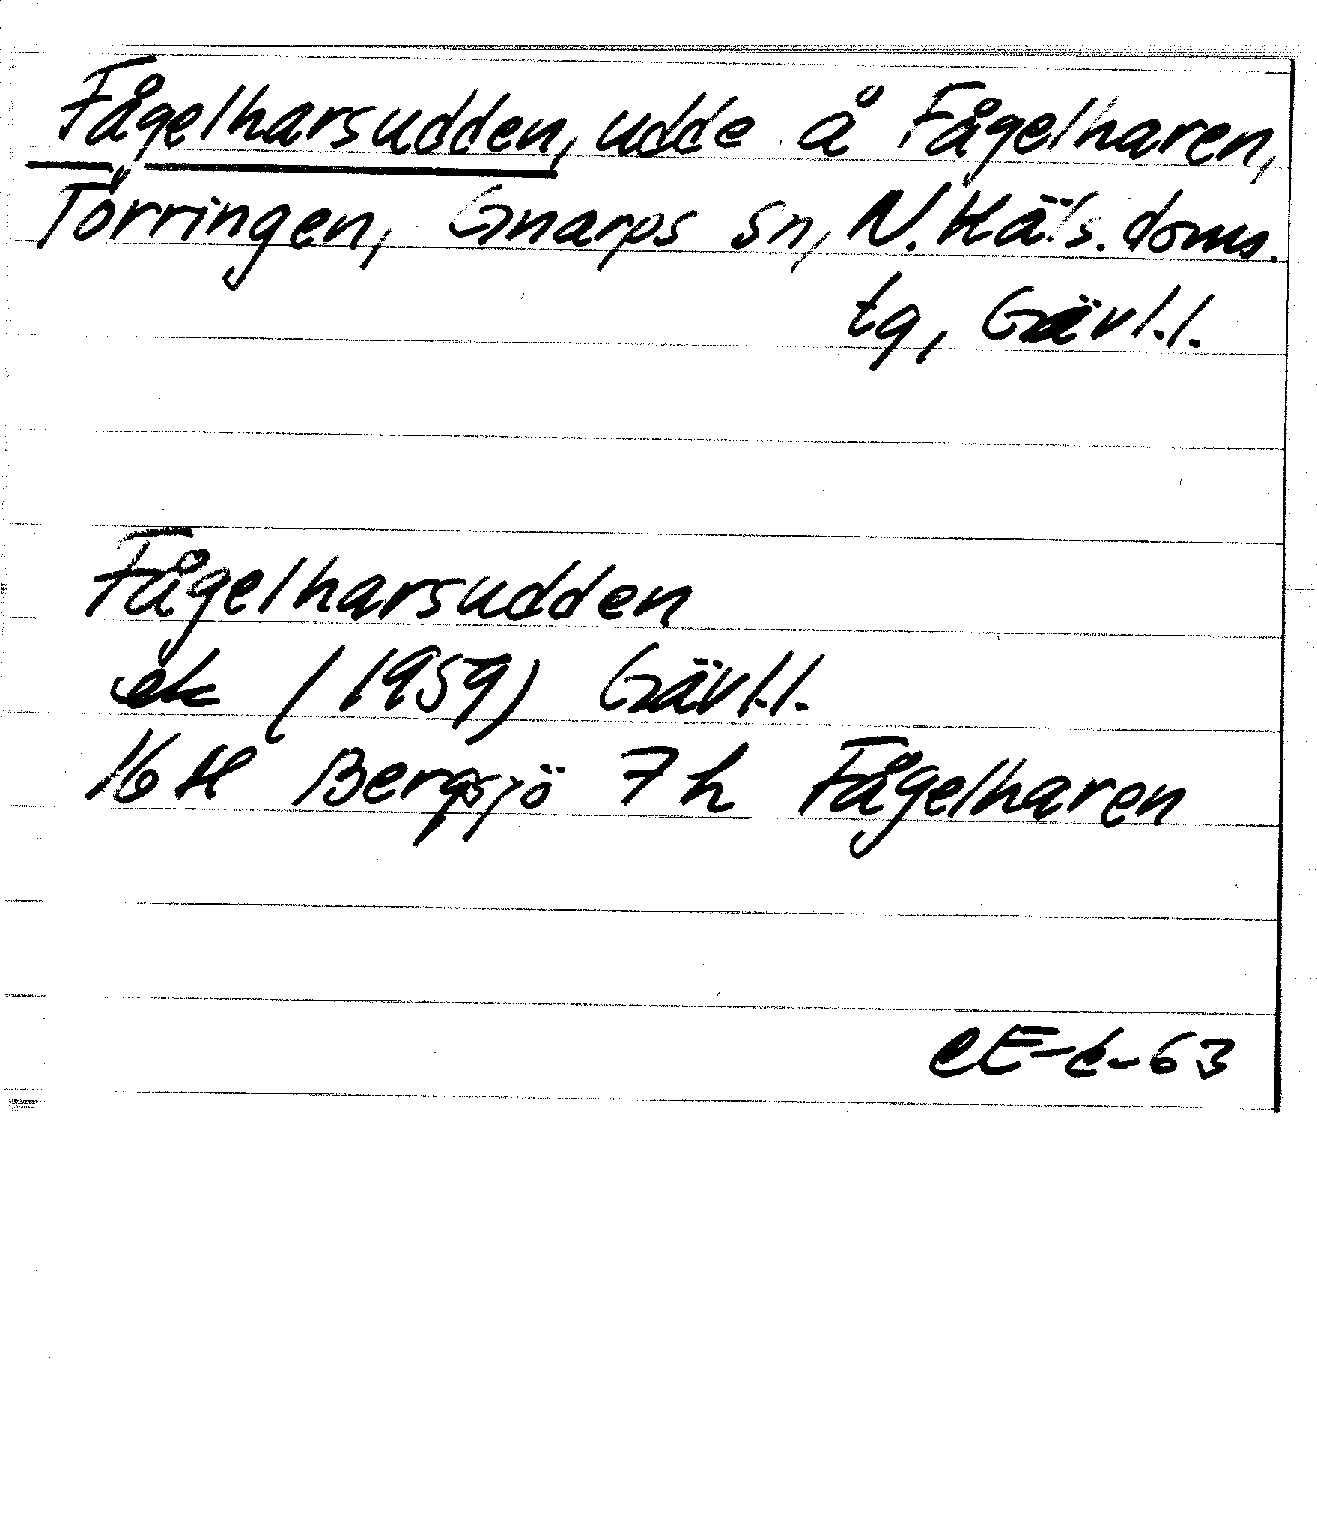 Fågelharsudden, udde å Fågelharen,
Törringen, Gnarps sn, N. Häls. doms.
tg, Gävl.l.
Fågelharsudden
ek (1959) Gävl.l.
16 H Bergsjö 7 h Fågelharen
CE-6-63